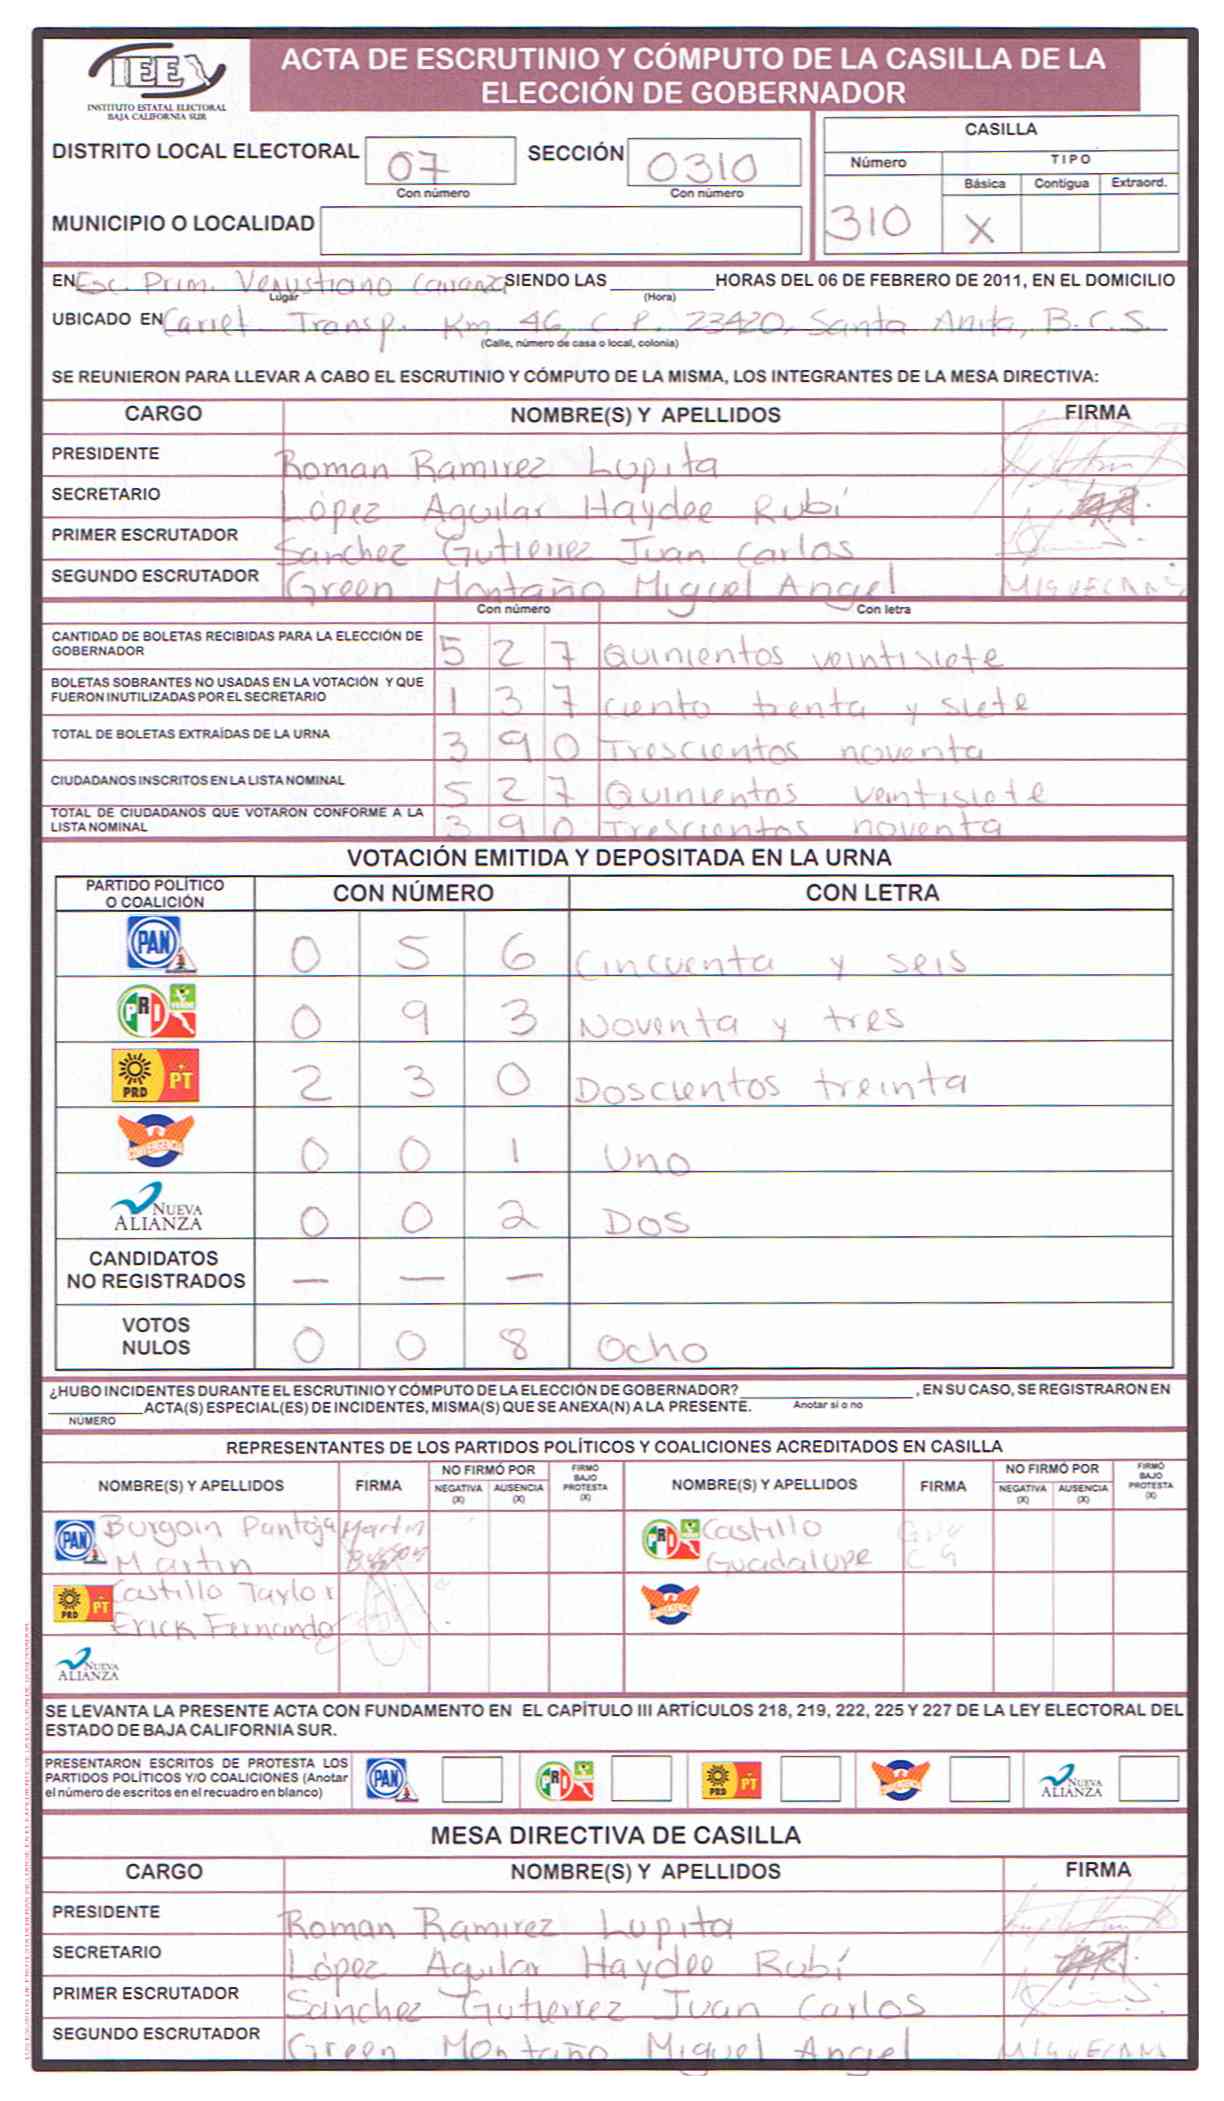 IEE
INSTITUTO ESTATAL ELECTORAL
BAJA CALIFORNIA SUR
ACTA DE ESCRUTINIO Y CÓMPUTO DE LA CASILLA DE LA
ELECCIÓN DE GOBERNADOR
DISTRITO LOCAL ELECTORAL 07 SECCIÓN 0310
Con número Con número
MUNICIPIO O LOCALIDAD
CASILLA
Número TIPO
Básica Contigua Extraord.
310 X
EN Esc. Prim. Venustiano Carranza SIENDO LAS HORAS DEL 06 DE FEBRERO DE 2011, EN EL DOMICILIO
Lugar (Hora)
UBICADO EN Carret. Transp. Km. 46, C.P. 23420, Santa Anita, B.C.S.
(Calle, número de casa o local, colonia)
SE REUNIERON PARA LLEVAR A CABO EL ESCRUTINIO Y CÓMPUTO DE LA MISMA, LOS INTEGRANTES DE LA MESA DIRECTIVA:
CARGO NOMBRE(S) Y APELLIDOS FIRMA
PRESIDENTE Roman Ramirez Lupita
SECRETARIO López Aguilar Haydee Rubí
PRIMER ESCRUTADOR Sanchez Gutierrez Juan Carlos
SEGUNDO ESCRUTADOR Green Montaño Miguel Angel
Con número Con letra
CANTIDAD DE BOLETAS RECIBIDAS PARA LA ELECCIÓN DE
GOBERNADOR 5 2 7 Quinientos veintisiete
BOLETAS SOBRANTES NO USADAS EN LA VOTACIÓN Y QUE
FUERON INUTILIZADAS POR EL SECRETARIO 1 3 7 ciento trenta y siete
TOTAL DE BOLETAS EXTRAÍDAS DE LA URNA 3 9 0 Trescientos noventa
CIUDADANOS INSCRITOS EN LA LISTA NOMINAL 5 2 7 Quinientos veintisiete
TOTAL DE CIUDADANOS QUE VOTARON CONFORME A LA
LISTA NOMINAL 3 9 0 Trescientos noventa
VOTACIÓN EMITIDA Y DEPOSITADA EN LA URNA
PARTIDO POLÍTICO
O COALICIÓN CON NÚMERO CON LETRA
PAN 0 5 6 Cincuenta y seis
PRI VERDE 0 9 3 Noventa y tres
PRD PT 2 3 0 Doscientos treinta
CONVERGENCIA 0 0 1 Uno
NUEVA ALIANZA 0 0 2 Dos
CANDIDATOS
NO REGISTRADOS — — —
VOTOS
NULOS 0 0 8 Ocho
¿HUBO INCIDENTES DURANTE EL ESCRUTINIO Y CÓMPUTO DE LA ELECCIÓN DE GOBERNADOR? , EN SU CASO, SE REGISTRARON EN
ACTA(S) ESPECIAL(ES) DE INCIDENTES, MISMA(S) QUE SE ANEXA(N) A LA PRESENTE. Anotar sí o no
NÚMERO
REPRESENTANTES DE LOS PARTIDOS POLÍTICOS Y COALICIONES ACREDITADOS EN CASILLA
NOMBRE(S) Y APELLIDOS FIRMA NO FIRMÓ POR NEGATIVA (X) AUSENCIA (X) FIRMÓ BAJO PROTESTA (X) NOMBRE(S) Y APELLIDOS FIRMA NO FIRMÓ POR NEGATIVA (X) AUSENCIA (X) FIRMÓ BAJO PROTESTA (X)
PAN Burgoin Pantoja Martin PRI VERDE Castillo
Martin Guadalupe C G
PRD PT Castillo Taylor CONVERGENCIA
Erick Fernando
NUEVA ALIANZA
SE LEVANTA LA PRESENTE ACTA CON FUNDAMENTO EN EL CAPÍTULO III ARTÍCULOS 218, 219, 222, 225 Y 227 DE LA LEY ELECTORAL DEL
ESTADO DE BAJA CALIFORNIA SUR.
PRESENTARON ESCRITOS DE PROTESTA LOS
PARTIDOS POLÍTICOS Y/O COALICIONES (Anotar
el número de escritos en el recuadro en blanco) PAN PRI PRD PT CONVERGENCIA NUEVA ALIANZA
MESA DIRECTIVA DE CASILLA
CARGO NOMBRE(S) Y APELLIDOS FIRMA
PRESIDENTE Roman Ramirez Lupita
SECRETARIO López Aguilar Haydee Rubí
PRIMER ESCRUTADOR Sanchez Gutierrez Juan Carlos
SEGUNDO ESCRUTADOR Green Montaño Miguel Angel